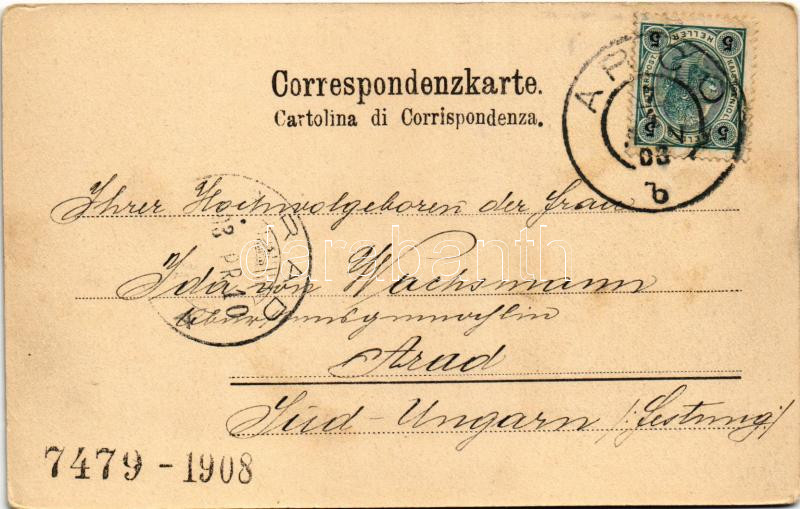 Correspondenzkarte.
Cartolina di Corrispondenza.
5 5
HELLER
5 5
ARCO
03
b
Ihrer Hochwolgeboren der Frau
ARAD
Ida von Wachsmann
Arad
Süd-Ungarn /:Festung:/
darabanth
7479 - 1908